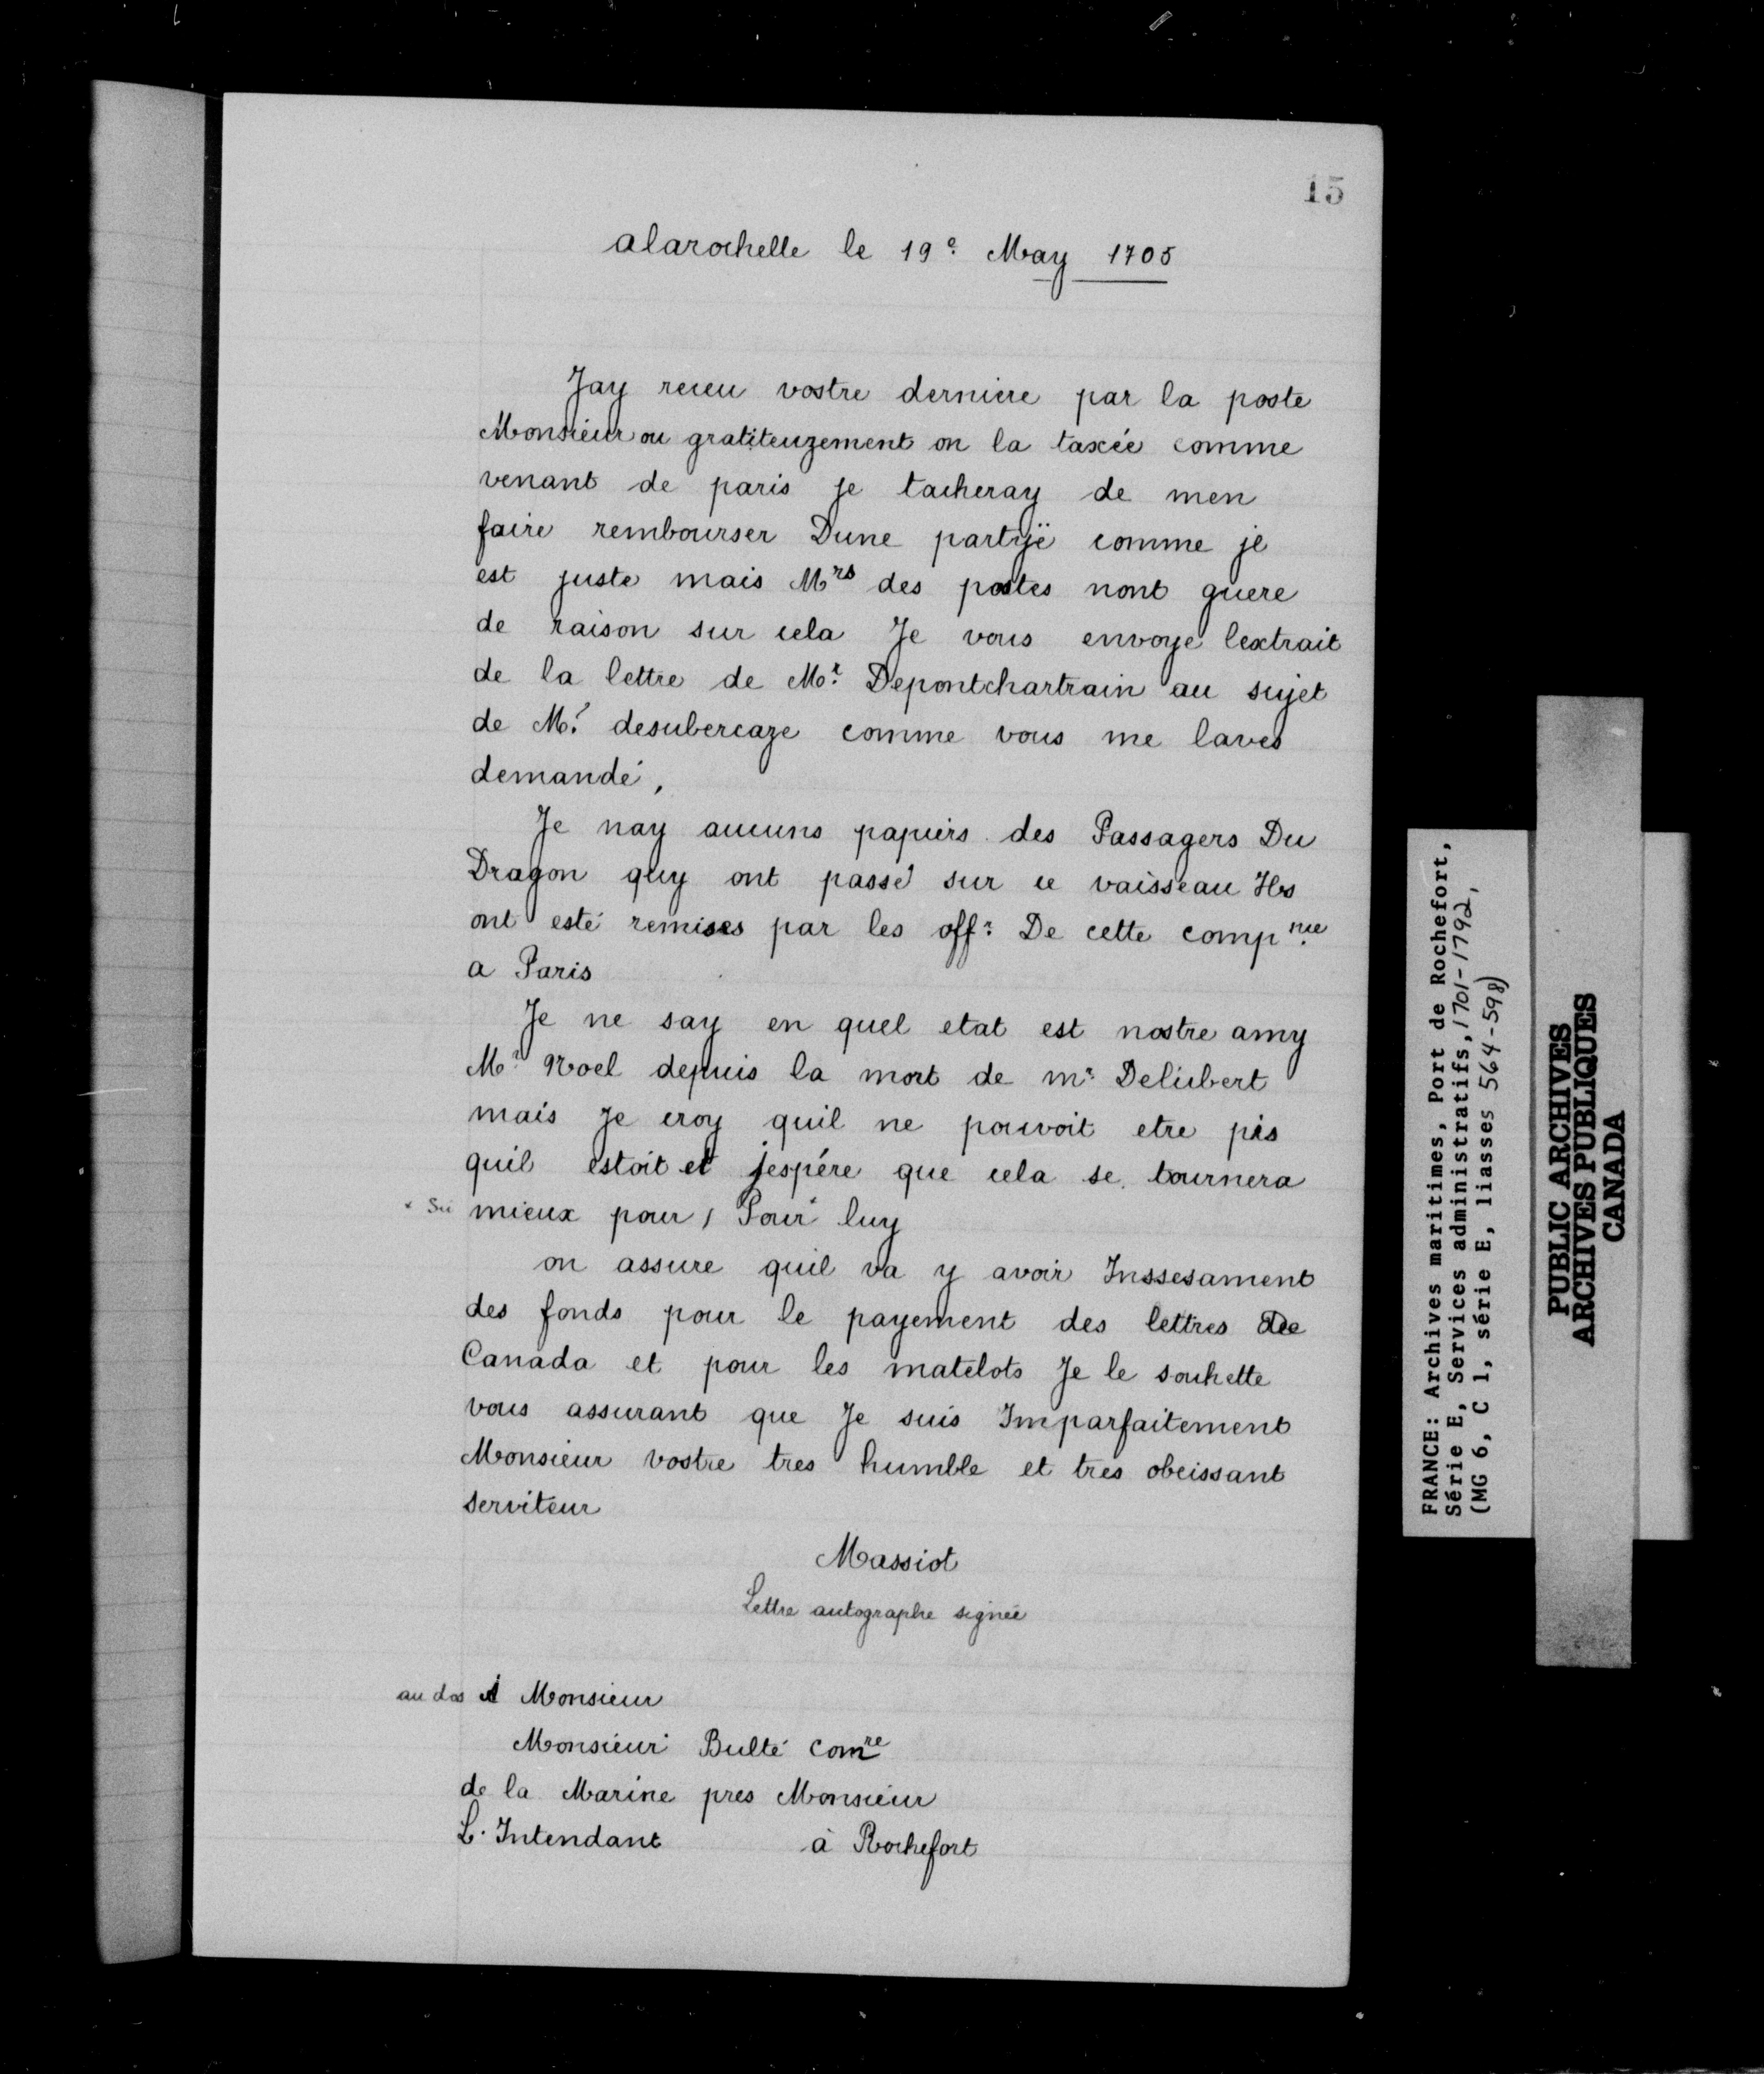 15
alarochelle le 19e May 1705
Jay receu vostre derniere par la poste
Monsieur ou gratiteuzement on la taxée comme
venant de paris je tacheray de men
faire rembourser Dune partyë comme je
est juste mais Mrs des postes nont guere
de raison sur cela Je vous envoye lextrait
de la lettre de Mr. Depontchartrain au sujet
de Mr. desubercaze comme vous me laves
demandé,
Je nay aucuns papiers des Passagers Du
Dragon quy ont passé sur ce vaisseau Ils
ont esté remises par les offr. De cette compnie
a Paris
Je ne say en quel etat est nostre amy
Mr. Noel depuis la mort de mr. Deliubert
mais Je croy quil ne pouvoit etre pis
quil estoit et jespére que cela se tournera
mieux pour, Pour luy
on assure quil va y avoir Inssesament
des fonds pour le payement des lettres De
Canada et pour les matelots Je le souhette
vous assurant que Je suis Imparfaitement
Monsieur vostre tres humble et tres obeissant
serviteur
Massiot
Lettre autographe signée
au dos A Monsieur
Monsieur Bulté comre
de la Marine pres Monsieur
L. Intendant à Rochefort
FRANCE: Archives maritimes, Port de Rochefort,
Série E, Services administratifs, 1701-1792,
(MG 6, C 1, série E, liasses 564-598)
PUBLIC ARCHIVES
ARCHIVES PUBLIQUES
CANADA